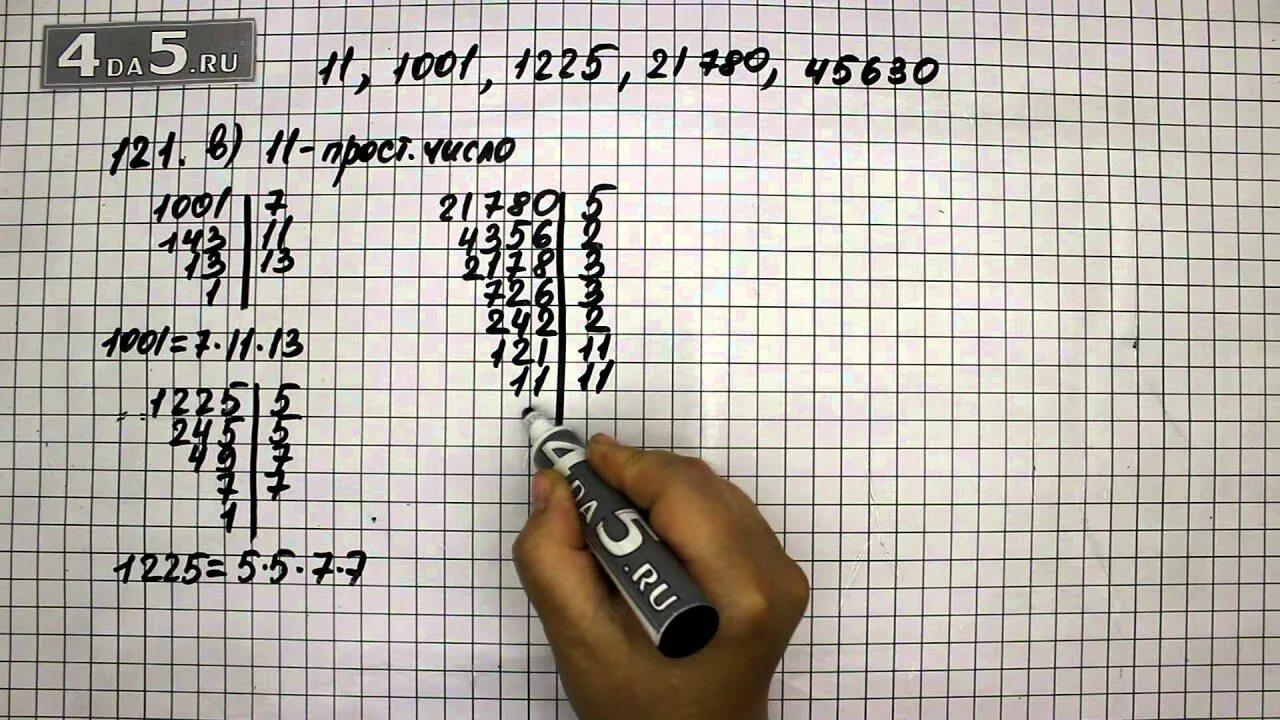 4DA5.RU
11, 1001, 1225, 21780, 45630
121. в) 11 - прост. число
1001 | 7
143 | 11
13 | 13
1
1001 = 7 · 11 · 13
1225 | 5
245 | 5
49 | 7
7 | 7
1
1225 = 5 · 5 · 7 · 7
21780 | 5
4356 | 2
2178 | 3
726 | 3
242 | 2
121 | 11
11 | 11
4DA5.RU